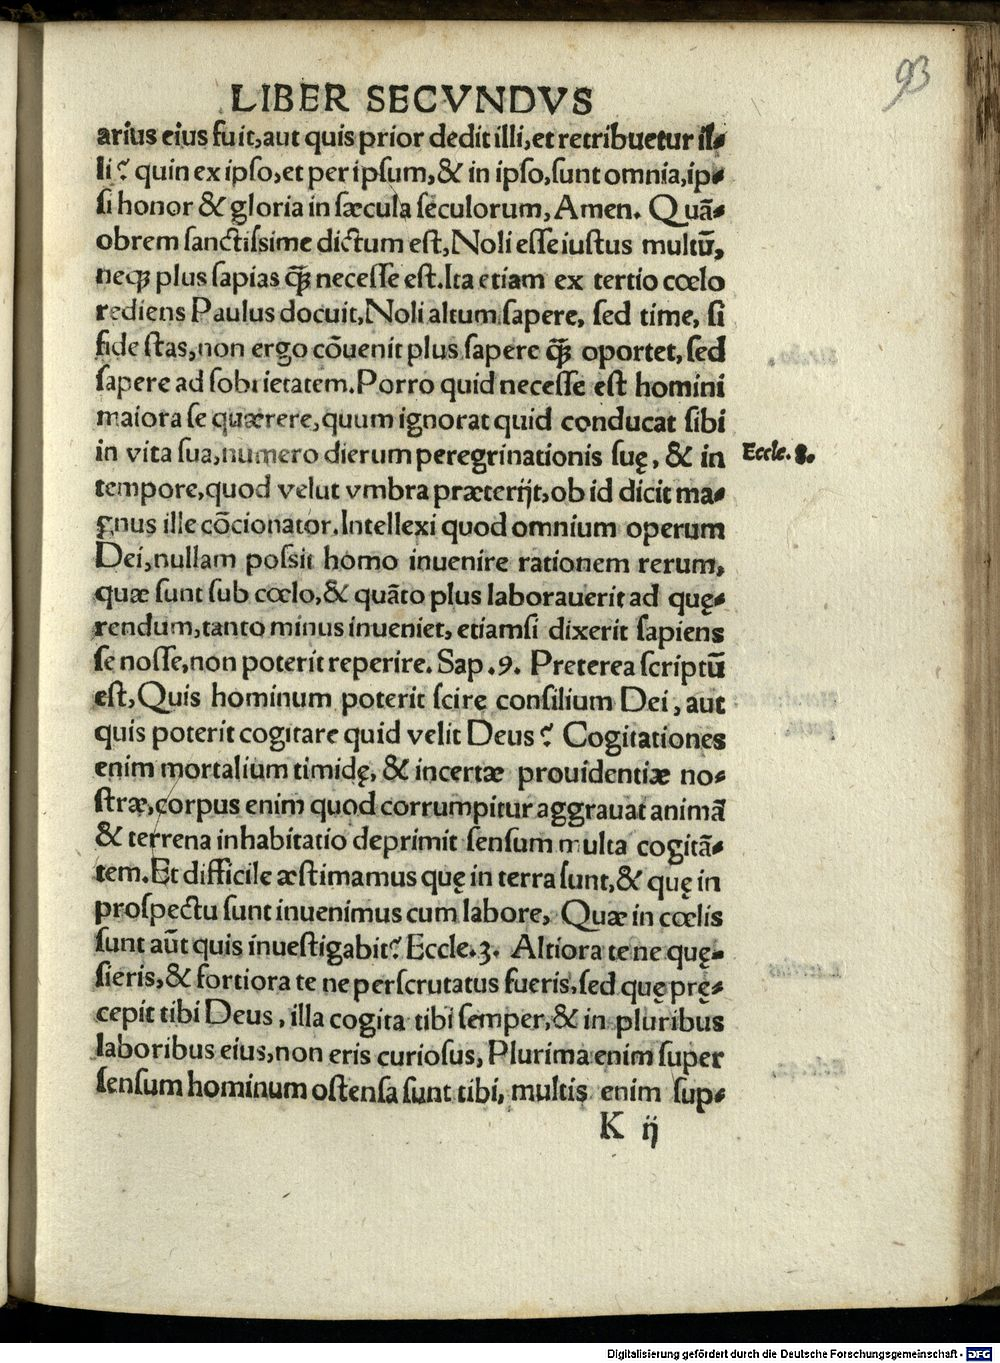 93
LIBER SECVNDVS
arius eius fuit,aut quis prior dedit illi,et retribuetur il-
li? quin ex ipſo,et per ipſum,& in ipſo,ſunt omnia,ip-
ſi honor & gloria in ſæcula ſeculorum, Amen. Quã-
obrem ſanctiſsime dictum eſt, Noli eſſe iuſtus multũ,
neqꝫ plus ſapias ꝙ̃ neceſſe eſt.Ita etiam ex tertio cœlo
rediens Paulus docuit, Noli altum ſapere, ſed time, ſi
fide ſtas,non ergo cõuenit plus ſapere ꝙ̃ oportet, ſed
ſapere ad ſobrietatem.Porro quid neceſſe eſt homini
maiora ſe quærere,quum ignorat quid conducat ſibi
in vita ſua,numero dierum peregrinationis ſuę, & in
Eccle.8.
tempore,quod velut vmbra præterijt,ob id dicit ma-
gnus ille cõcionator.Intellexi quod omnium operum
Dei,nullam poſsit homo inuenire rationem rerum,
quæ ſunt ſub cœlo,& quãto plus laborauerit ad quę-
rendum,tanto minus inueniet, etiamſi dixerit ſapiens
ſe noſſe,non poterit reperire. Sap.9. Preterea ſcriptũ
eſt, Quis hominum poterit ſcire conſilium Dei, aut
quis poterit cogitare quid velit Deus? Cogitationes
enim mortalium timidę, & incertæ prouidentiæ no-
ſtræ,corpus enim quod corrumpitur aggrauat animã
& terrena inhabitatio deprimit ſenſum multa cogitã-
tem.Et difficile æſtimamus quę in terra ſunt,& quę in
proſpectu ſunt inuenimus cum labore, Quæ in cœlis
ſunt aũt quis inueſtigabit? Eccle.3. Altiora te ne quę-
ſieris,& fortiora te ne perſcrutatus fueris,ſed quę prę-
cepit tibi Deus, illa cogita tibi ſemper,& in pluribus
laboribus eius,non eris curioſus, Plurima enim ſuper
ſenſum hominum oſtenſa ſunt tibi, multis enim ſup-
K ij
Digitalisierung gefördert durch die Deutsche Forschungsgemeinschaft - DFG